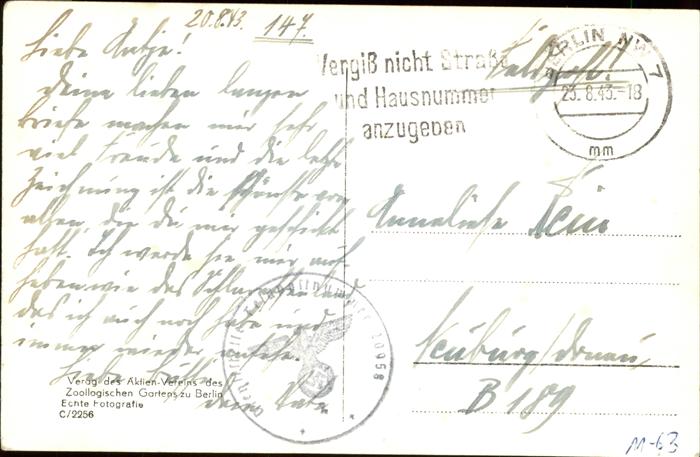 20.8.43. 147.
Liebe Antje!
Deine lieben langen
Briefe machen mir sehr
viel Freude und die letzte
Zeichnung ist die schönste von
allen, die du mir geschickt
hast. Ich werde sie mir auf-
heben wie das Schlaraffenland
das ich auch noch habe und
immer wieder ansehe.
Liebe
dein Vater
Vergiß nicht Straße
und Hausnummer
anzugeben
Feldpost!
BERLIN NW 7
23.8.43.-18
mm
Anneliese
Neuburg/Donau
B 189
Feldpostnummer 10958
Verlag des Aktien-Vereins des
Zoologischen Gartens zu Berlin
Echte Fotografie
C/2256
M-63